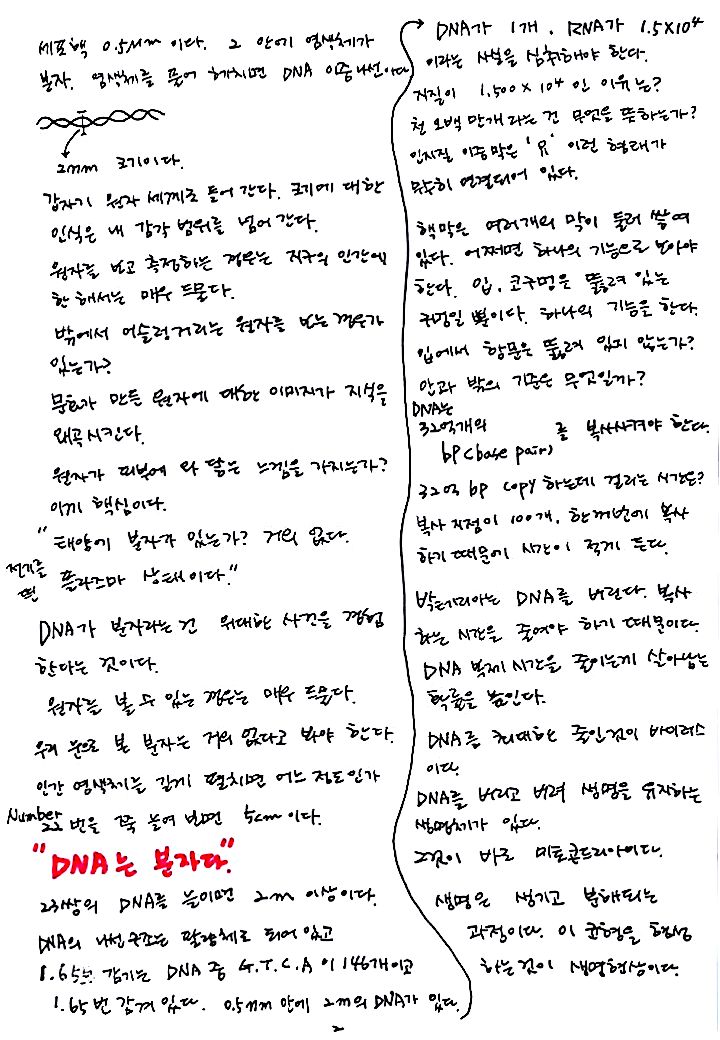 세포핵 0.5μm 이다. 그 안에 염색체가
분자. 염색체를 풀어 헤치면 DNA 이중나선이다
2nm 크기이다.
갑자기 원자 세계로 들어 간다. 크기에 대한
인식은 내 감각 범위를 넘어 간다.
원자를 보고 측정하는 경우는 지구의 인간에
한해서는 매우 드물다.
밖에서 어슬렁거리는 원자를 보는 경우가
있는가?
문화가 만든 원자에 대한 이미지가 지식을
왜곡시킨다.
원자가 피부에 와 닿는 느낌을 가지는가?
이게 핵심이다.
"태양에 분자가 있는가? 거의 없다.
전기를 띤 플라즈마 상태이다."
DNA가 분자라는건 위대한 사건을 경험
한다는 것이다.
원자를 볼 수 있는 경우는 매우 드물다.
우리 눈으로 본 분자는 거의 없다고 봐야 한다.
인간 염색체는 길게 펼치면 어느 정도인가
Number 22 번을 쭉 늘여 보면 5cm 이다.
"DNA는 분자다"
23쌍의 DNA를 늘이면 2m 이상이다.
DNA의 나선구조는 팔량체로 되어 있고
1.65번 감기는 DNA 중 G.T.C.A 이 146개이고
1.65번 감겨 있다. 0.5μm 안에 2m의 DNA가 있다.
DNA가 1개, RNA가 1.5×10⁴
이라는 사실을 심취해야 한다.
지질이 1,500×10⁴ 인 이유는?
천 오백 만개 라는 건 무엇을 뜻하는가?
인지질 이중 막은 ' ' 이런 형태가
무수히 연결되어 있다.
핵막은 여러개의 막이 둘러 쌓여
있다. 어쩌면 하나의 기능으로 보아야
한다. 입, 코구멍은 뚫려 있는
구멍일 뿐이다. 하나의 기능을 한다.
입에서 항문은 뚫려 있지 않는가?
안과 밖의 기준은 무엇일까?
DNA는
32억개의 bp(base pair)를 복사시켜야 한다.
32억 bp copy 하는데 걸리는 시간은?
복사 지점이 100개, 한꺼번에 복사
하기 때문에 시간이 적게 든다.
박테리아는 DNA를 버린다. 복사
하는 시간을 줄여야 하기 때문이다.
DNA 복제 시간을 줄이는게 살아남는
확률을 높인다.
DNA를 최대한 줄인것이 바이러스
이다.
DNA를 버리고 버려 생명을 유지하는
생명체가 있다.
그것이 바로 미토콘드리아이다.
생명은 생기고 분해되는
과정이다. 이 균형을 형성
하는것이 생명현상이다.
2